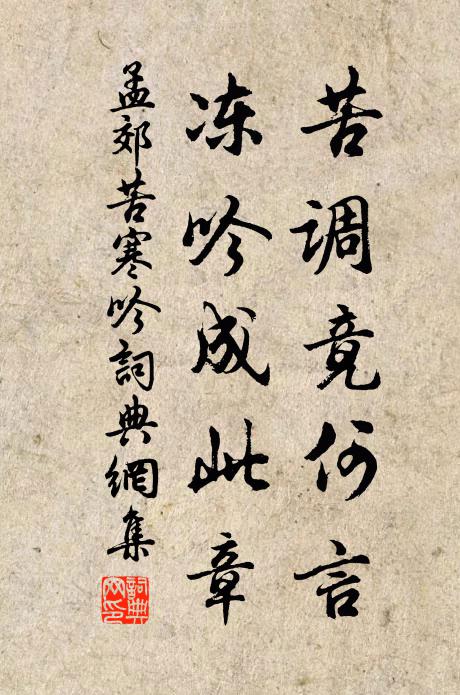 苦调竟何言
冻吟成此章
孟郊苦寒吟詞典網集
詞典
网印